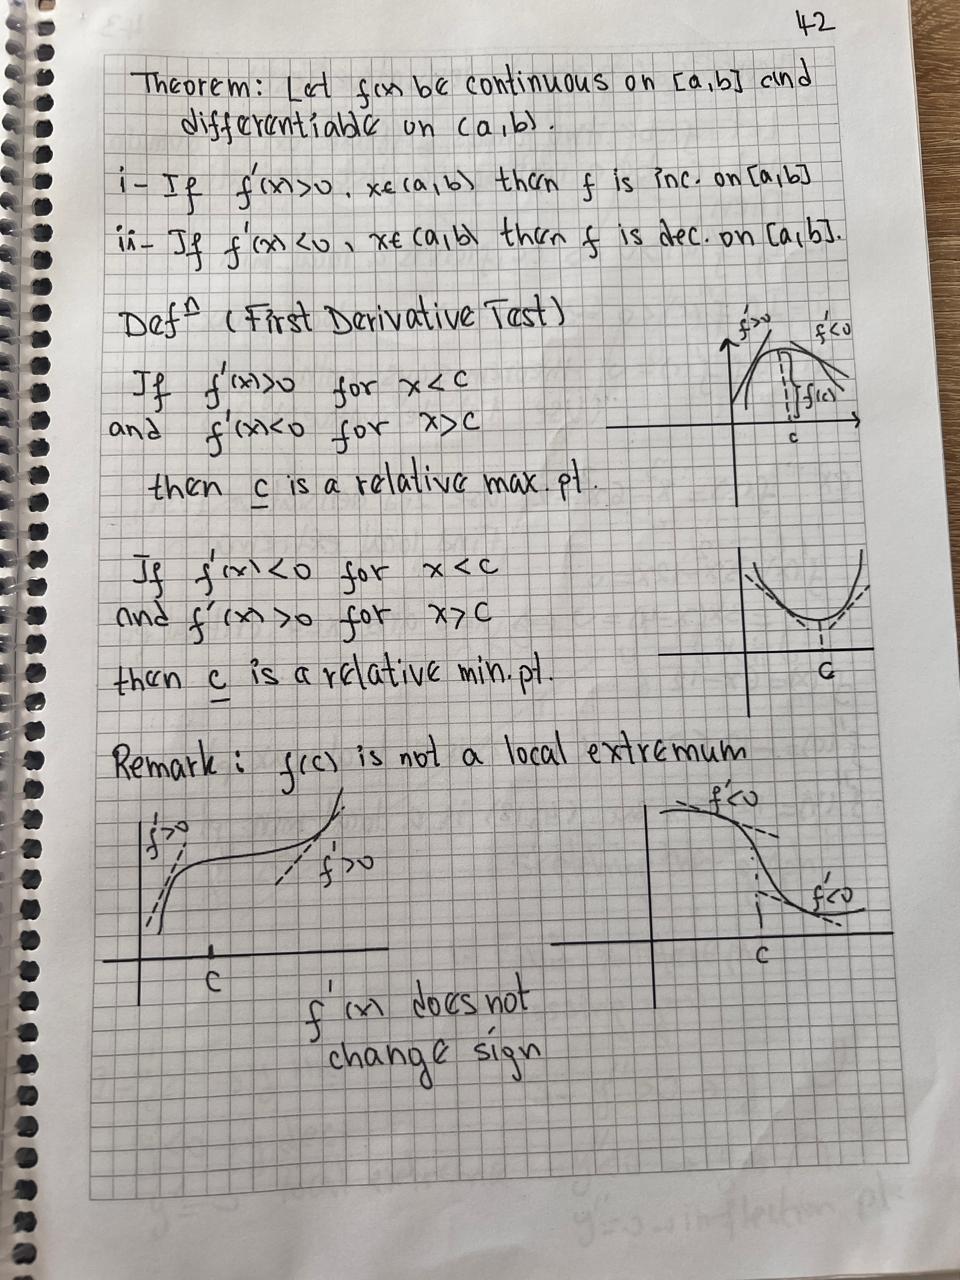 42
Theorem: Let f(x) be continuous on [a,b] and
differentiable on (a,b).
i- If f'(x)>0, x∈(a,b) then f is inc. on [a,b]
ii- If f'(x)<0, x∈(a,b) then f is dec. on [a,b].
Defⁿ (First Derivative Test)
If f'(x)>0 for x<c
and f'(x)<0 for x>c
then c is a relative max. pt.
f'>0
f'<0
f(c)
c
If f'(x)<0 for x<c
and f'(x)>0 for x>c
then c is a relative min. pt.
c
Remark: f(c) is not a local extremum
f'>0
f'>0
c
f'<0
f'<0
c
f'(x) does not
change sign